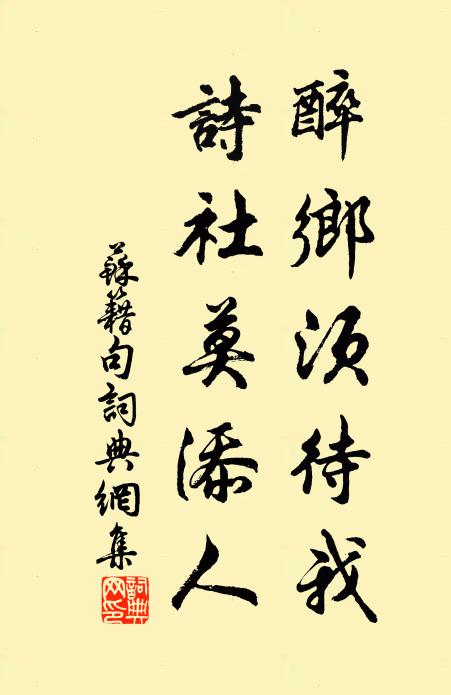 醉鄉須待我
詩社莫添人
蘇籍句詞典網集
詞典网印